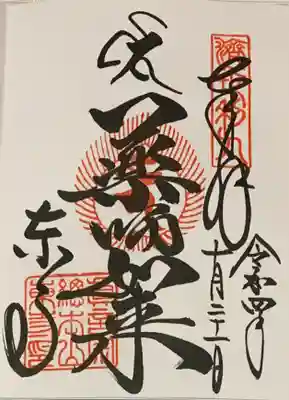 奉拝
令和四年
十月二十一日
薬師如来
東寺
總本山